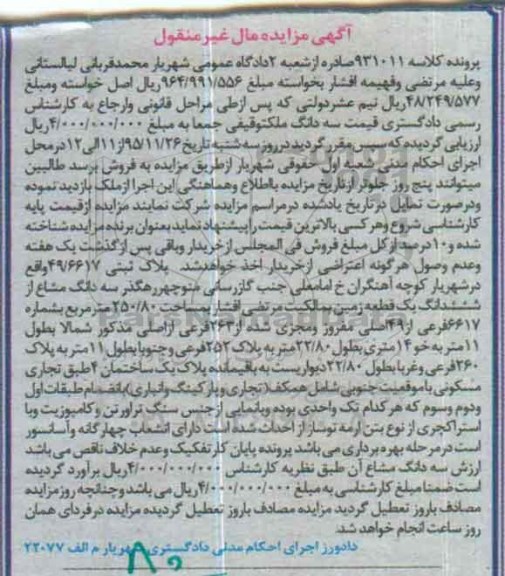 آگهی مزایده مال غیر منقول
پرونده کلاسه ۹۳۱۰۱۱صادره از شعبه ۲دادگاه عمومی شهریار محمدقربانی لیالستانی
وعلیه مرتضی وفهیمه افشار بخواسته مبلغ ۹۶۴/۹۹۱/۵۵۶ریال اصل خواسته ومبلغ
۴۸/۲۴۹/۵۷۷ریال نیم عشردولتی که پس ازطی مراحل قانونی وارجاع به کارشناس
رسمی دادگستری قیمت سه دانگ ملکتوقیفی جمعا به مبلغ ۴/۰۰۰/۰۰۰/۰۰۰ریال
ارزیابی گردیده که سپس مقرر گردید درروز سه شنبه تاریخ ۹۵/۱۱/۲۶از۱۱الی۱۲درمحل
اجرای احکام مدنی شعبه اول حقوقی شهریار ازطریق مزایده به فروش برسد طالبین
میتوانند پنج روز جلوتر ازتاریخ مزایده بااطلاع وهماهنگی این اجرا ازملک بازدید نموده
ودرصورت تمایل درتاریخ یادشده درمراسم مزایده شرکت نمایند مزایده ازقیمت پایه
کارشناسی شروع وهرکسی بالاترین قیمت راپیشنهاد نماید بعنوان برنده مزایده شناخته
شده و۱۰درصد ازکل مبلغ فروش فی المجلس ازخریدار وباقی پس ازگذشت یک هفته
وعدم وصول هرگونه اعتراضی ازخریدار اخذ خواهدشد. پلاک ثبتی ۴۹/۶۶۱۷واقع
درشهریار کوچه آهنگران خ امامعلی جنب گازرسانی منوچهررهگذر سه دانگ مشاع از
ششدانگ یک قطعه زمین به مالکیت مرتضی افشار به مساحت ۲۵۰/۸۰مترمربع بشماره
۶۶۱۷فرعی از۴۹اصلی مفروز ومجزی شده از۲۶۳فرعی ازاصلی مذکور شمالا بطول
۱۱متر به خو ۱۴متری بطول ۲۲/۸۰متر به پلاک ۲۵۲فرعی وجنوبابطول ۱۱متر به پلاک
۲۶۰فرعی وغربا بطول ۲۲/۸۰دیواریست به باقیمانده پلاک یک ساختمان ۴طبق تجاری
مسکونی باموقعیت جنوبی شامل همکف(تجاری وپارکینگ وانباری)بانضمام طبقات اول
ودوم وسوم که هرکدام تک واحدی بوده وبانمایی ازجنس سنگ تراورتن وکامپوزیت وبا
استراکچری از نوع بتن آرمه نوساز از احداث شده است دارای انشعاب چهارگانه وآسانسور
است درمرحله بهره برداری می باشد پرونده پایان کارتفکیک وعدم خلاف ناقص می باشد
ارزش سه دانگ مشاع آن طبق نظریه کارشناس ۴/۰۰۰/۰۰۰/۰۰۰ریال برآورد گردیده
است ضمنا مبلغ کارشناسی به مبلغ ۴/۰۰۰/۰۰۰/۰۰۰ریال می باشد وچنانچه روزمزایده
مصادف باروز تعطیل گردید مزایده مصادف باروز تعطیل گردیده مزایده درفردای همان
روز ساعت انجام خواهد شد
دادورز اجرای احکام مدنی دادگستری شهریار م الف ۲۲۰۷۷